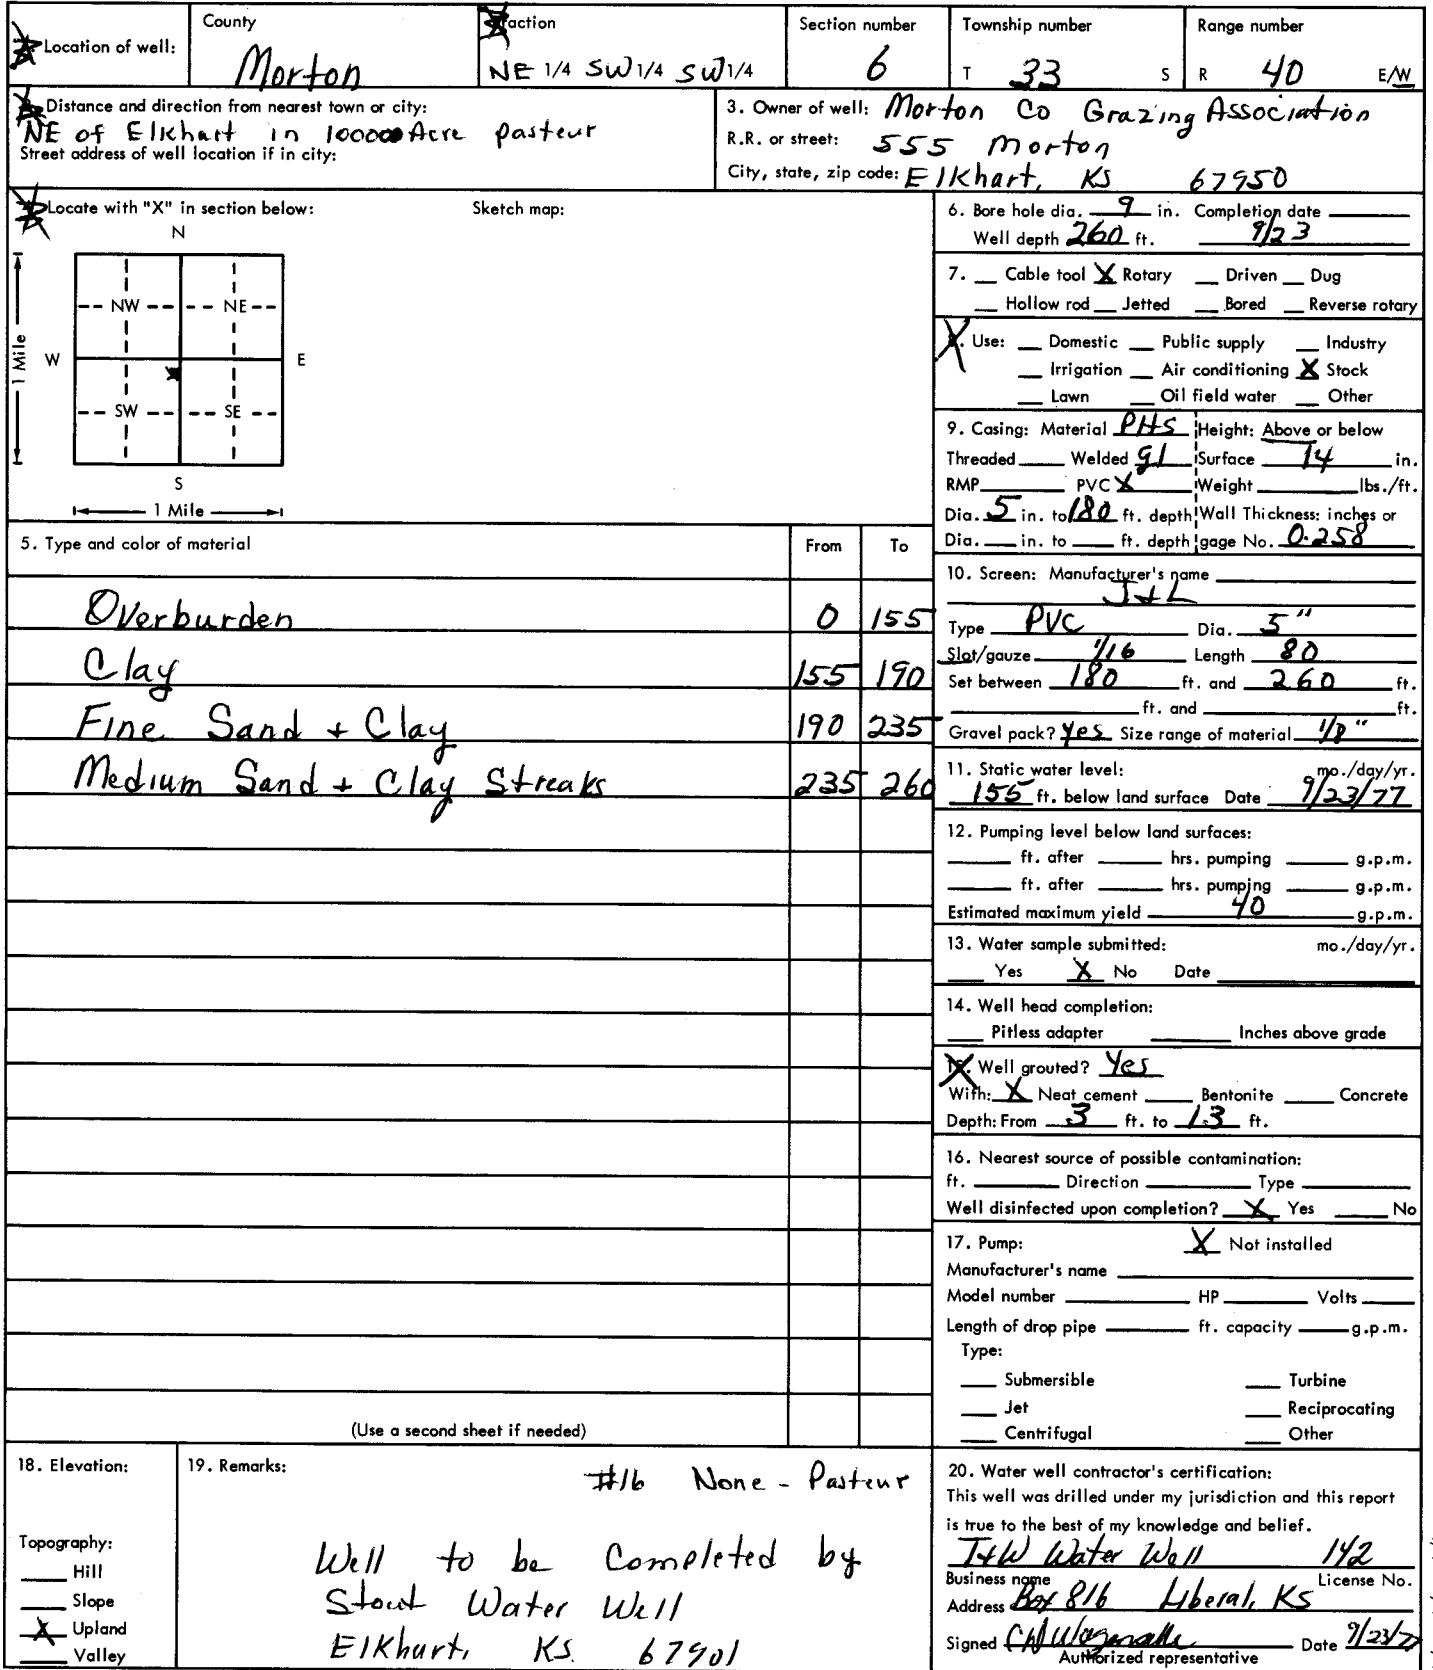 Location of well: County Morton Fraction NE 1/4 SW 1/4 SW 1/4 Section number 6 Township number T 33 S Range number R 40 E/W
Distance and direction from nearest town or city:
NE of Elkhart in 100000 Acre pasteur
Street address of well location if in city:
3. Owner of well: Morton Co Grazing Association
R.R. or street: 555 Morton
City, state, zip code: Elkhart, KS 67950
Locate with "X" in section below: Sketch map:
N
NW NE
W E
SW SE
S
1 Mile
1 Mile
5. Type and color of material From To
Overburden 0 155
Clay 155 190
Fine Sand + Clay 190 235
Medium Sand + Clay Streaks 235 260
(Use a second sheet if needed)
6. Bore hole dia. 9 in. Completion date
Well depth 260 ft. 9/23
7. Cable tool X Rotary Driven Dug
Hollow rod Jetted Bored Reverse rotary
Use: Domestic Public supply Industry
Irrigation Air conditioning X Stock
Lawn Oil field water Other
9. Casing: Material PHS Height: Above or below
Threaded Welded gl Surface 14 in.
RMP PVC X Weight lbs./ft.
Dia. 5 in. to 180 ft. depth Wall Thickness: inches or
Dia. in. to ft. depth gage No. 0.258
10. Screen: Manufacturer's name
J+L
Type PVC Dia. 5"
Slot/gauze 1/16 Length 80
Set between 180 ft. and 260 ft.
ft. and ft.
Gravel pack? Yes Size range of material 1/8"
11. Static water level: mo./day/yr.
155 ft. below land surface Date 9/23/77
12. Pumping level below land surfaces:
ft. after hrs. pumping g.p.m.
ft. after hrs. pumping g.p.m.
Estimated maximum yield 40 g.p.m.
13. Water sample submitted: mo./day/yr.
Yes X No Date
14. Well head completion:
Pitless adapter Inches above grade
15. Well grouted? Yes
With: X Neat cement Bentonite Concrete
Depth: From 3 ft. to 13 ft.
16. Nearest source of possible contamination:
ft. Direction Type
Well disinfected upon completion? X Yes No
17. Pump: X Not installed
Manufacturer's name
Model number HP Volts
Length of drop pipe ft. capacity g.p.m.
Type:
Submersible Turbine
Jet Reciprocating
Centrifugal Other
18. Elevation:
Topography:
Hill
Slope
X Upland
Valley
19. Remarks: #16 None - Pasteur
Well to be Completed by
Stout Water Well
Elkhart, KS. 67901
20. Water well contractor's certification:
This well was drilled under my jurisdiction and this report
is true to the best of my knowledge and belief.
T+W Water Well 142
Business name License No.
Address Box 816 Liberal, KS
Signed Date 9/23/77
Authorized representative